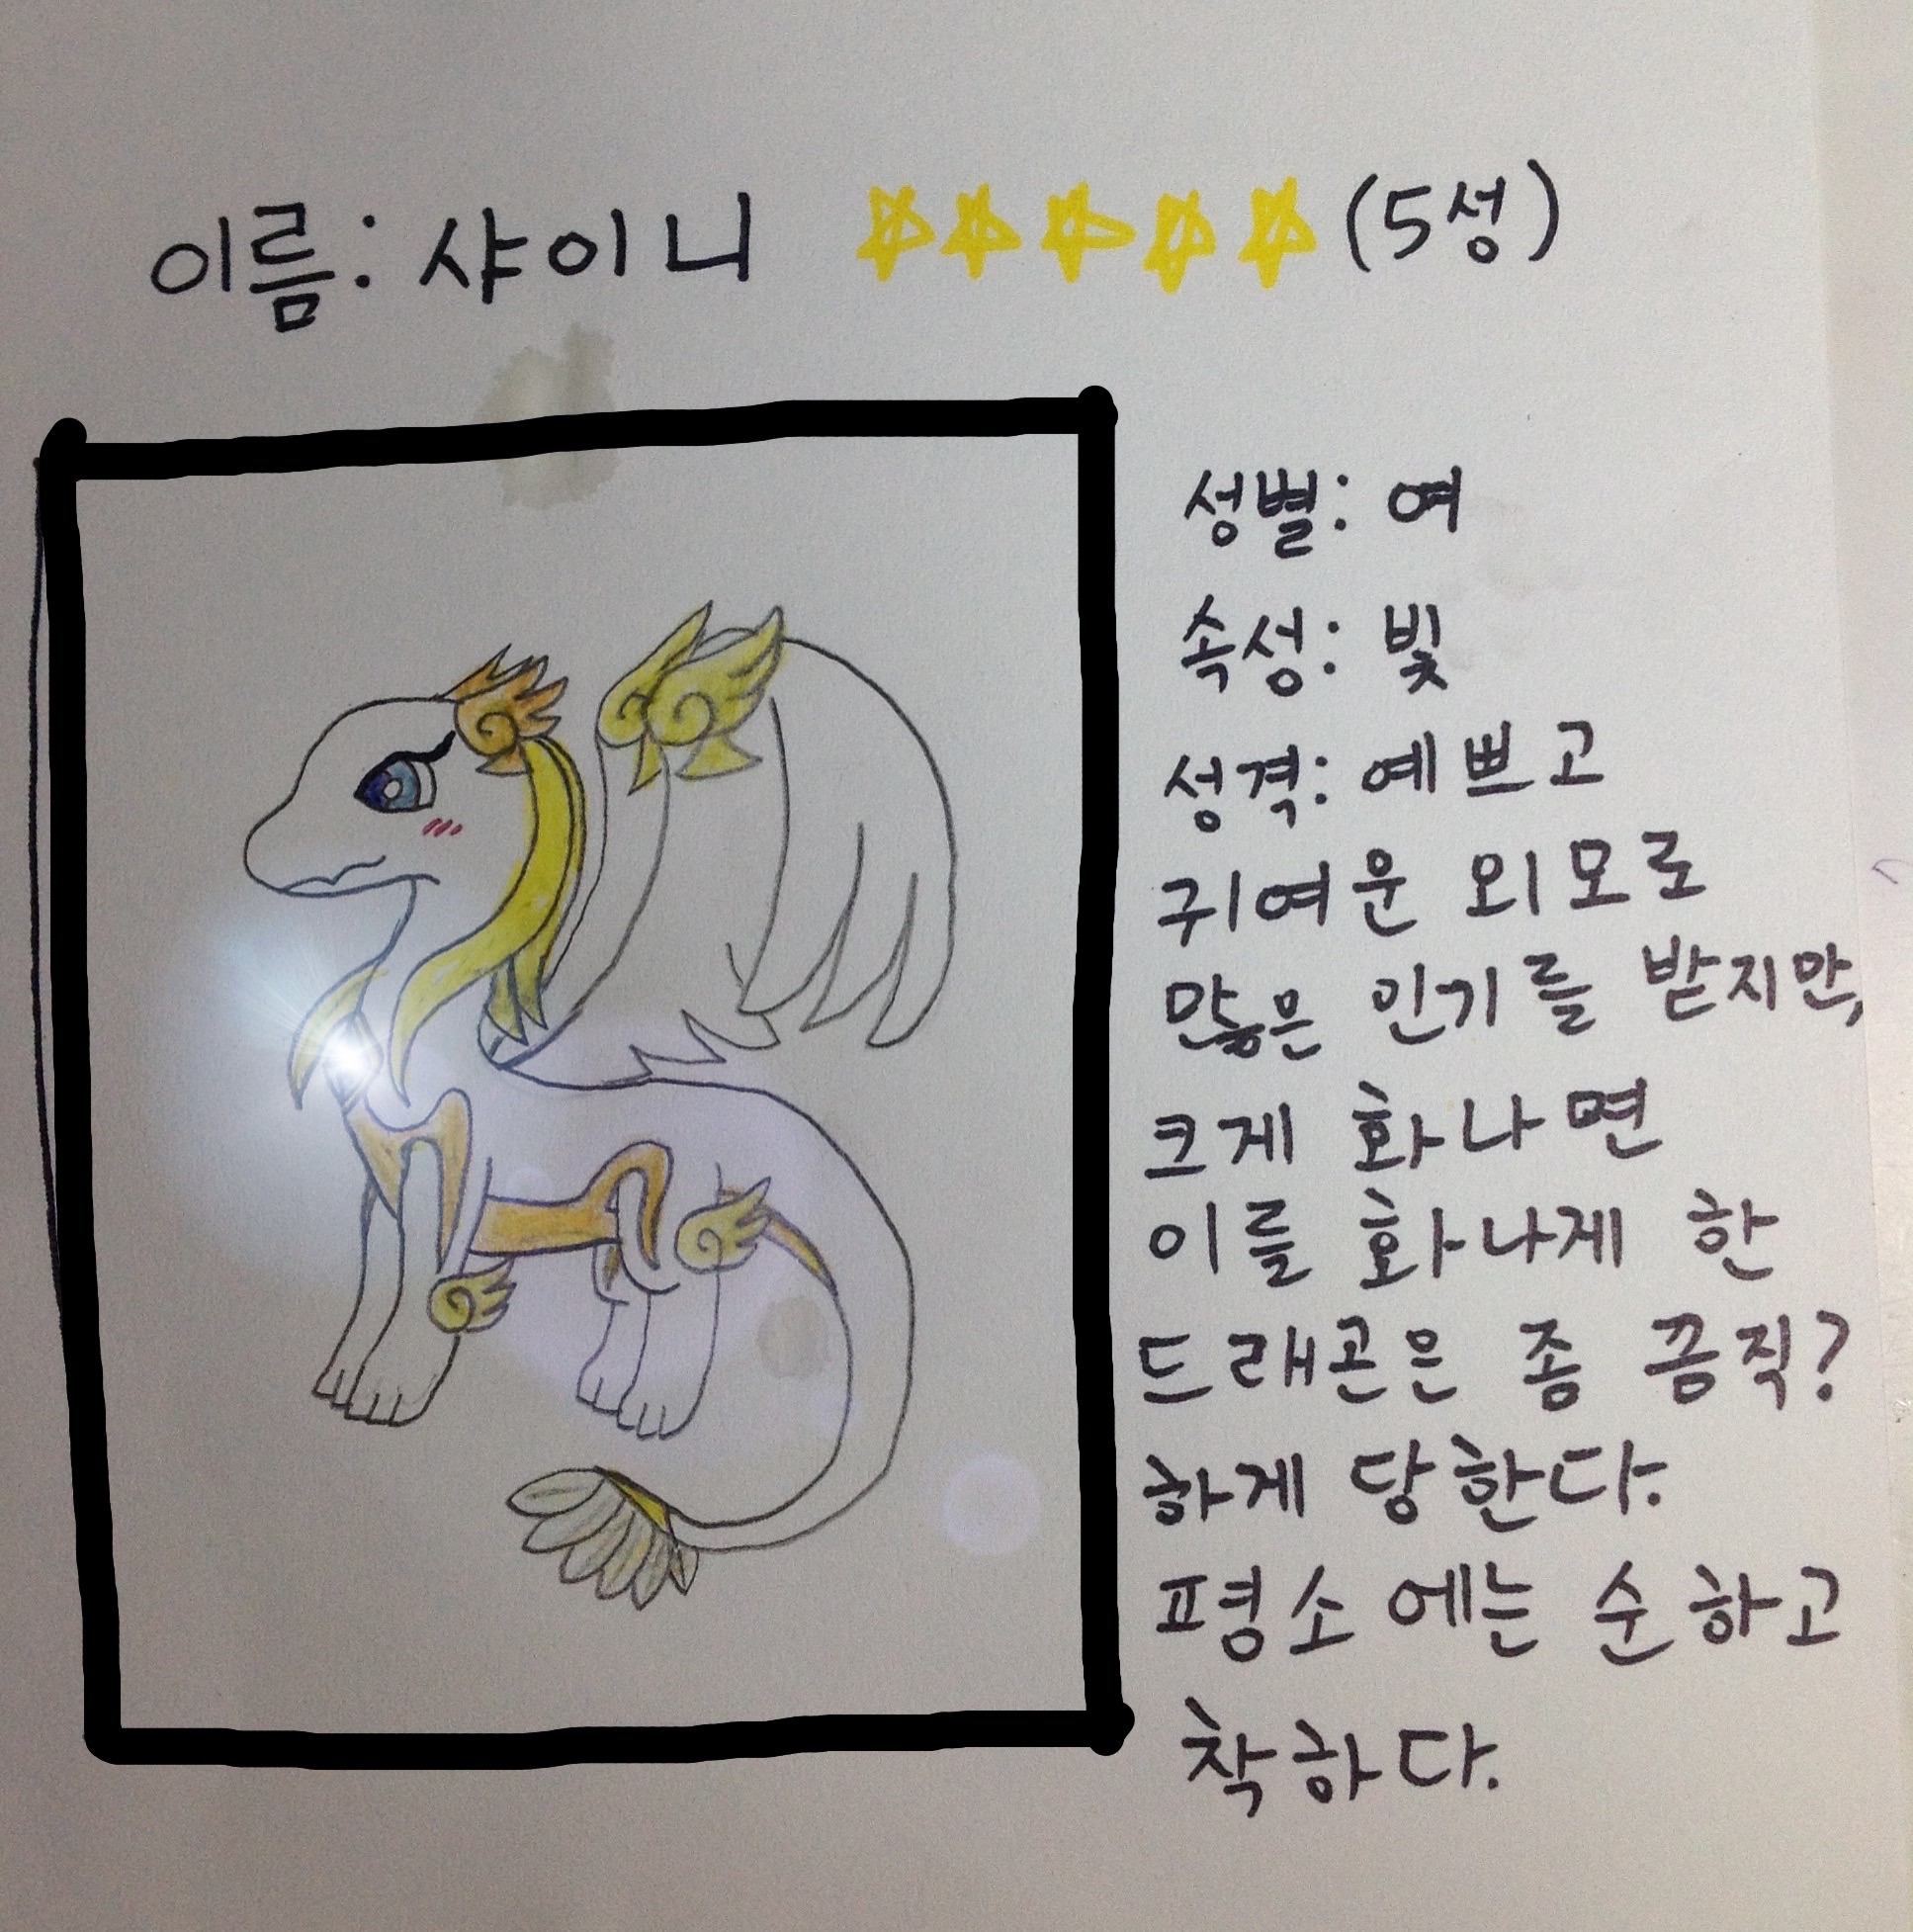 이름: 샤이니 ☆☆☆☆☆ (5성)
성별: 여
속성: 빛
성격: 예쁘고
귀여운 외모로
많은 인기를 받지만,
크게 화나면
이를 화나게 한
드래곤은 좀 끔직?
하게 당한다.
평소에는 순하고
착하다.